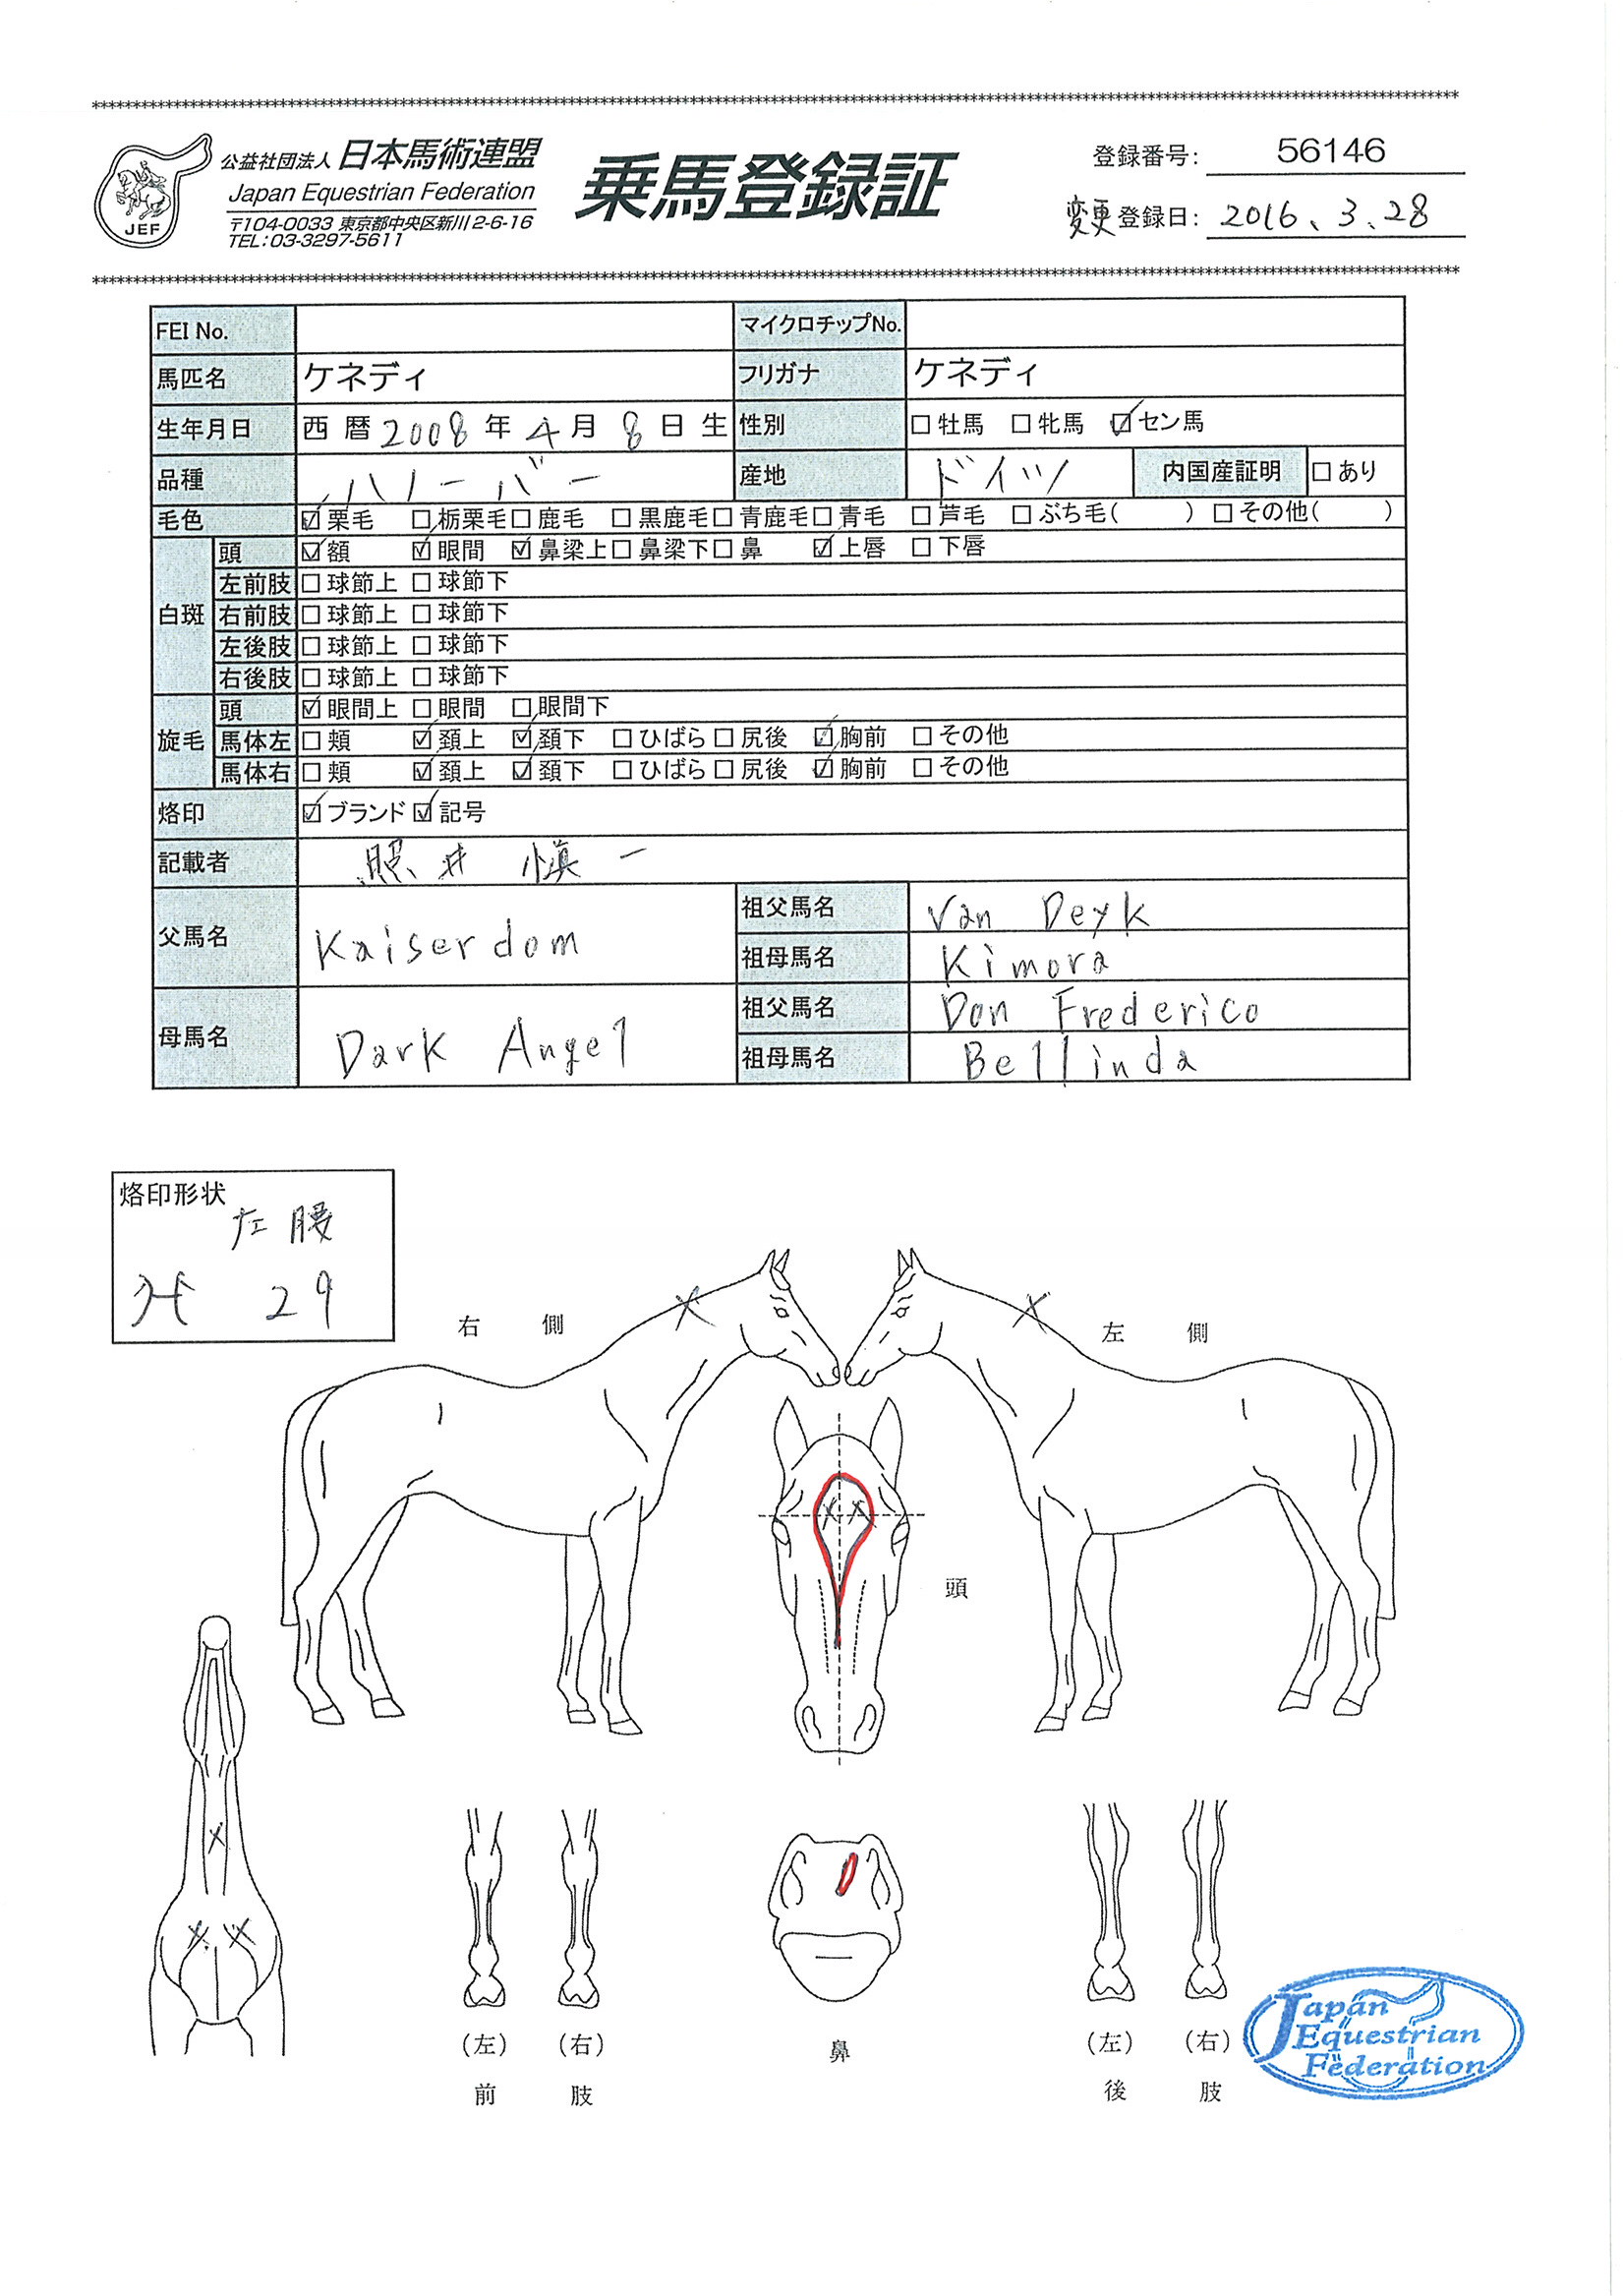 公益社団法人 日本馬術連盟
Japan Equestrian Federation
〒104-0033 東京都中央区新川2-6-16
TEL:03-3297-5611
JEF
乗馬登録証
登録番号: 56146
変更 登録日: 2016.3.28
FEI No. マイクロチップNo.
馬匹名 ケネディ フリガナ ケネディ
生年月日 西暦 2008 年 4 月 8 日 生 性別 □牡馬 □牝馬 ☑セン馬
品種 ハノーバー 産地 ドイツ 内国産証明 □あり
毛色 ☑栗毛 □栃栗毛 □鹿毛 □黒鹿毛 □青鹿毛 □青毛 □芦毛 □ぶち毛( ) □その他( )
白斑 頭 ☑額 ☑眼間 ☑鼻梁上 □鼻梁下 □鼻 ☑上唇 □下唇
左前肢 □球節上 □球節下
右前肢 □球節上 □球節下
左後肢 □球節上 □球節下
右後肢 □球節上 □球節下
旋毛 頭 ☑眼間上 □眼間 □眼間下
馬体左 □頬 ☑頚上 ☑頚下 □ひばら □尻後 ☑胸前 □その他
馬体右 □頬 ☑頚上 ☑頚下 □ひばら □尻後 ☑胸前 □その他
烙印 ☑ブランド ☑記号
記載者 照井 慎一
父馬名 Kaiserdom 祖父馬名 Van Deyk
祖母馬名 Kimora
母馬名 Dark Angel 祖父馬名 Don Frederico
祖母馬名 Bellinda
烙印形状
左腰
29
右側 左側
頭
(左) (右) 鼻 (左) (右)
前肢 後肢
Japan
Equestrian
Federation